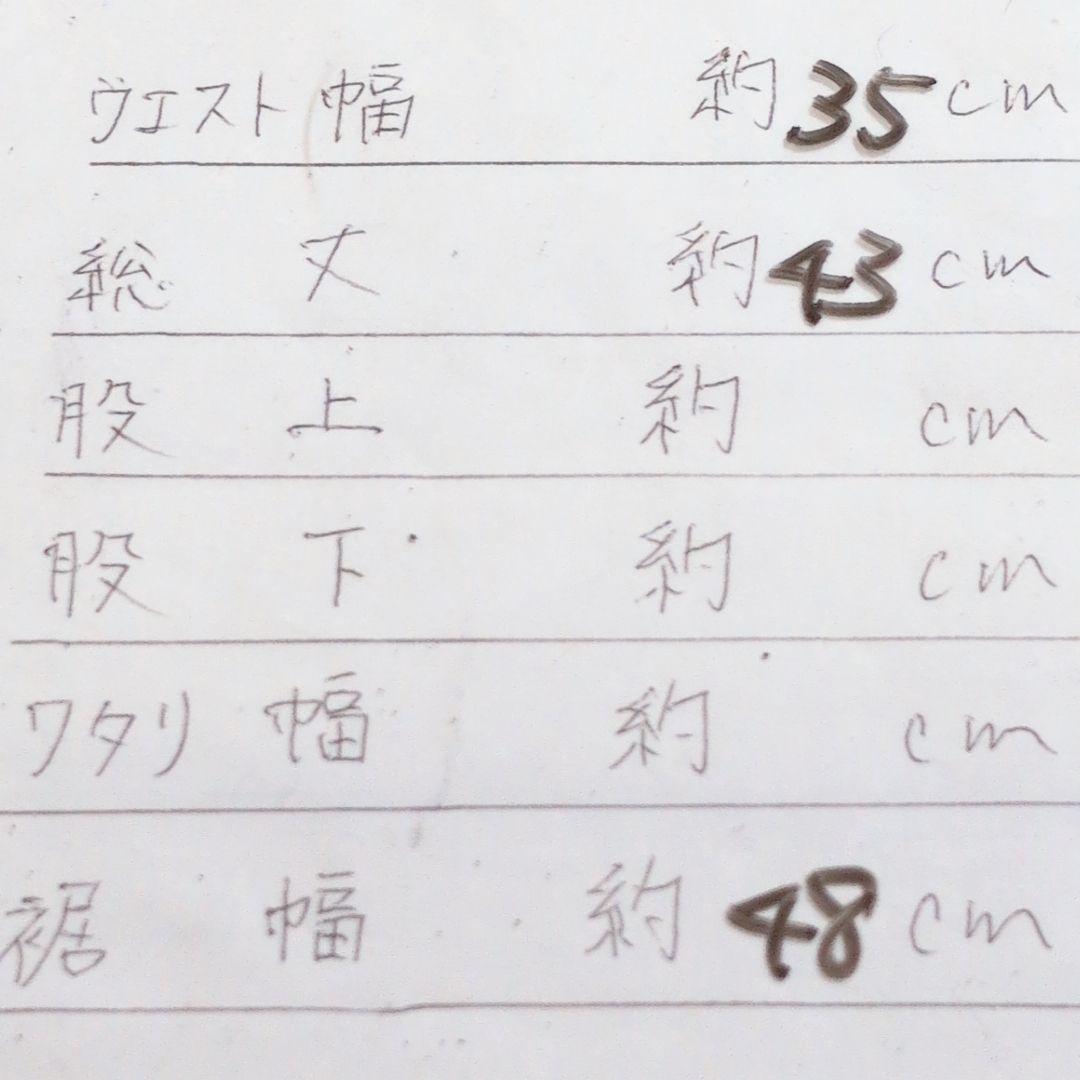 ウエスト幅 約35cm
総丈 約43cm
股上 約 cm
股下 約 cm
ワタリ幅 約 cm
裾幅 約48cm